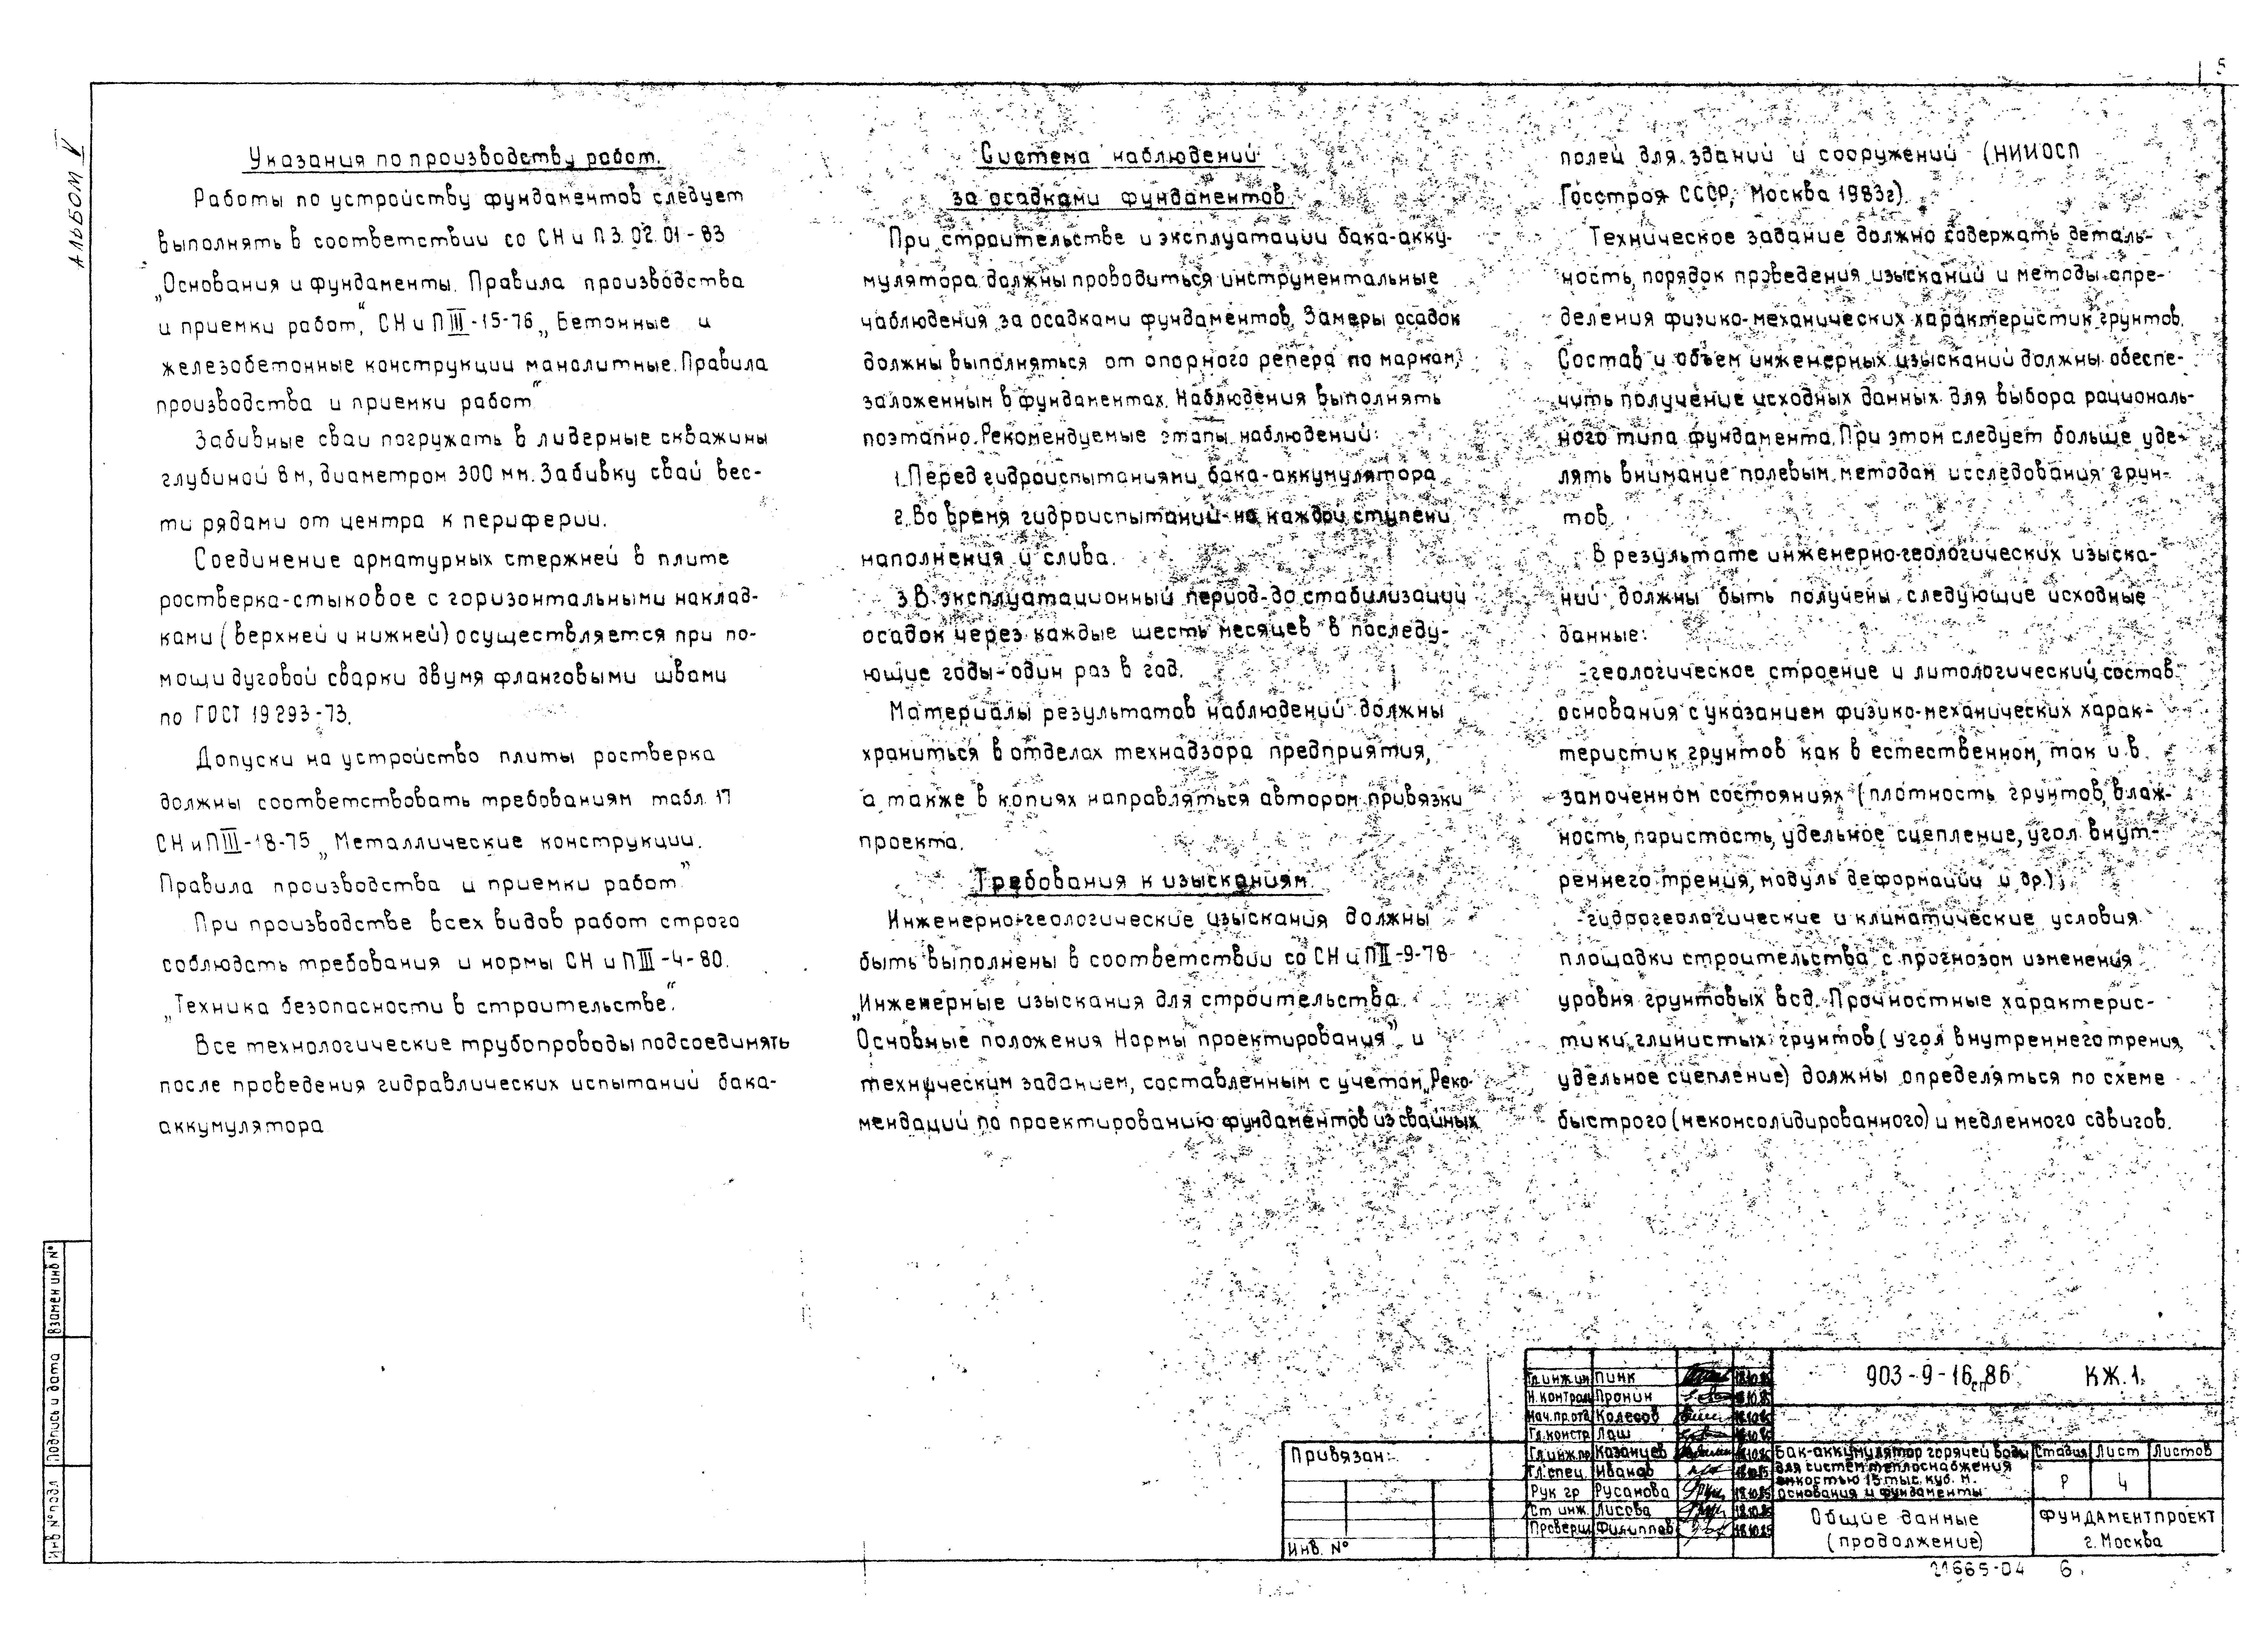 5
АЛЬБОМ V
Указания по производству работ.
Работы по устройству фундаментов следует
выполнять в соответствии со СН и П 3.02.01-83
„Основания и фундаменты. Правила производства
и приемки работ", СН и П III-15-76 „Бетонные и
железобетонные конструкции манолитные. Правила
производства и приемки работ"
Забивные сваи погружать в лидерные скважины
глубиной 8 м, диаметром 300 мм. Забивку свай вес-
ти рядами от центра к периферии.
Соединение арматурных стержней в плите
ростверка-стыковое с горизонтальными наклад-
ками (верхней и нижней) осуществляется при по-
мощи дуговой сварки двумя фланговыми швами
по ГОСТ 19293-73.
Допуски на устройство плиты ростверка
должны соответствовать требованиям табл. 17
СН и П III-18-75 „Металлические конструкции.
Правила производства и приемки работ"
При производстве всех видов работ строго
соблюдать требования и нормы СН и П III-4-80.
„Техника безопасности в строительстве".
Все технологические трубопроводы подсоединять
после проведения гидравлических испытаний бака-
аккумулятора
Система наблюдений
за осадками фундаментов.
При строительстве и эксплуатации бака-акку-
мулятора должны проводиться инструментальные
наблюдения за осадками фундаментов. Замеры осадок
должны выполняться от опорного репера по маркам,
заложенным в фундаментах. Наблюдения выполнять
поэтапно. Рекомендуемые этапы наблюдений:
1. Перед гидроиспытаниями бака-аккумулятора
2. Во время гидроиспытаний-на каждой ступени
наполнения и слива.
3. В эксплуатационный период-до стабилизации
осадок через каждые шесть месяцев в последу-
ющие годы-один раз в год.
Материалы результатов наблюдений должны
храниться в отделах технадзора предприятия,
а также в копиях направляться автором привязки
проекта.
Требования к изысканиям.
Инженерно-геологические изыскания должны
быть выполнены в соответствии со СН и П II-9-78
„Инженерные изыскания для строительства.
Основные положения Нормы проектирования" и
техническим заданием, составленным с учетом „Реко-
мендаций по проектированию фундаментов из свайных
полей для зданий и сооружений (НИИОСП
Госстроя СССР, Москва 1983г).
Техническое задание должно содержать деталь-
ность, порядок проведения изысканий и методы опре-
деления физико-механических характеристик грунтов.
Состав и объем инженерных изысканий должны обеспе-
чить получение исходных данных для выбора рациональ-
ного типа фундамента. При этом следует больше уде-
лять внимание полевым методам исследования грун-
тов.
В результате инженерно-геологических изыска-
ний должны быть получены следующие исходные
данные:
-геологическое строение и литологический состав
основания с указанием физико-механических харак-
теристик грунтов как в естественном, так и в
замоченном состояниях (плотность грунтов, влаж-
ность, паристость, удельное сцепление, угол внут-
реннего трения, модуль деформации и др.);
-гидрогеологические и климатические условия
площадки строительства с прогнозом изменения
уровня грунтовых вод. Прочностные характерис-
тики глинистых грунтов (угол внутреннего трения,
удельное сцепление) должны определяться по схеме
быстрого (неконсолидированного) и медленного сдвигов.
Взамен инв №
Подпись и дата
Инв № подл
Привязан:
Инв. №
Гл инж ин Пинк
Н. контрол Пронин
Нач. пр. отд Колесов
Гл. констр Лаш
Гл инж. пр Казанцев
Гл. спец. Иванов
Рук гр Русанова 18.10.85
Ст инж. Лисова
Проверил Филиппов 18.10.85
903-9-16сп.86 КЖ.1
Бак-аккумулятор горячей воды
для систем теплоснабжения
емкостью 15 тыс. куб. м.
Основания и фундаменты
Стадия Лист Листов
Р 4
Общие данные
(продолжение)
ФУНДАМЕНТПРОЕКТ
г. Москва
21665-04 6